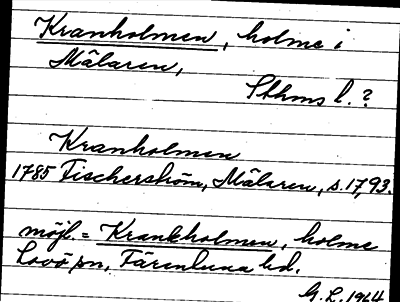 Kranholmen, holme i
Mälaren,
Sthms l.?
Kranholmen
1785 Fischerström, Mälaren, s. 17, 93.
möjl. = Krankholmen, holme
Lovö sn, Färentuna hd.
G. L. 1964